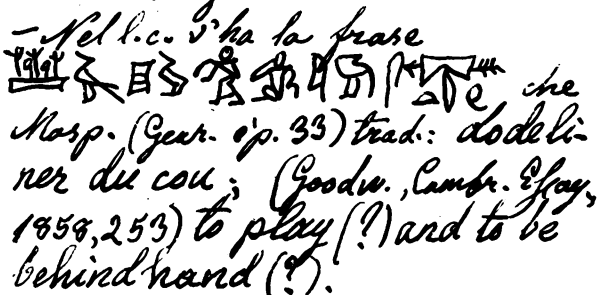 – Nel l.c. v'ha la frase
che
Masp. (Genr. ép. 33) trad.: dodeli-
ner du cou; (Goodw., Cambr. Essay,
1858, 253) to play (?) and to be
behindhand (?).